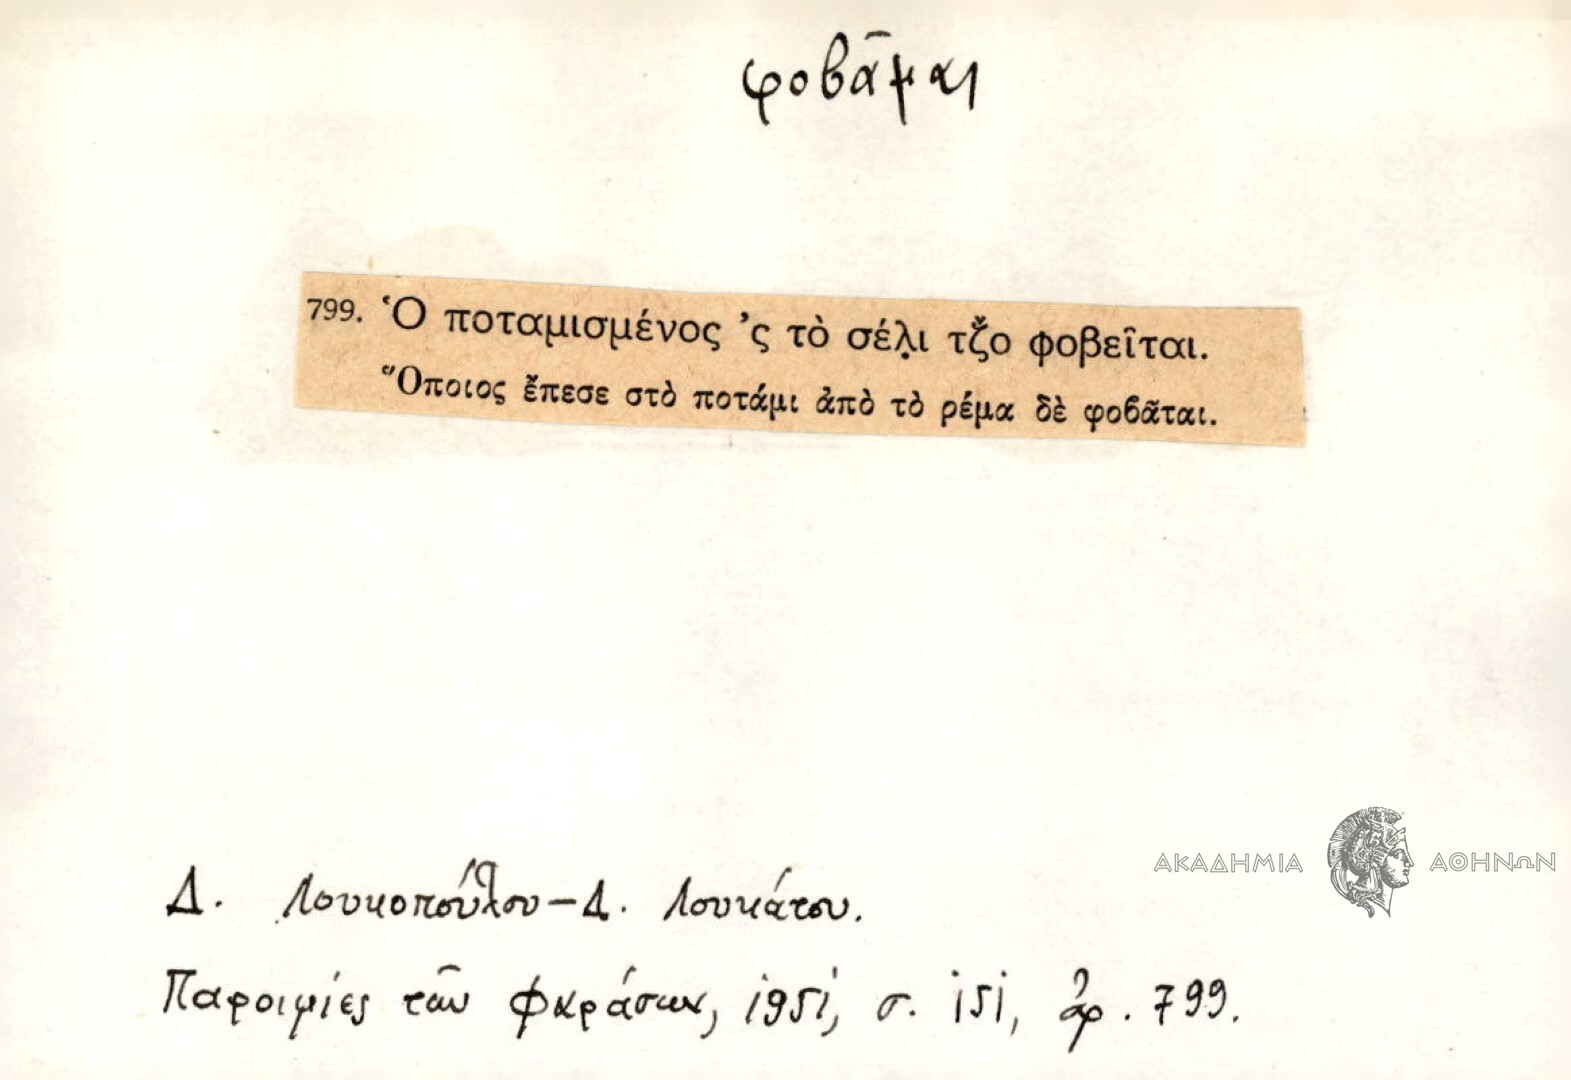 φοβᾶμαι
799. Ὁ ποταμισμένος ’ς τὸ σέλ̣ι τζ̌ο φοβεῖται.
Ὅποιος ἔπεσε στὸ ποτάμι ἀπὸ τὸ ρέμα δὲ φοβᾶται.
ΑΚΑΔΗΜΙΑ ΑΘΗΝΩΝ
Δ. Λουκοπούλου – Δ. Λουκάτου.
Παροιμίες τῶν Φαράσων, 1951, σ. 151, ἀρ. 799.